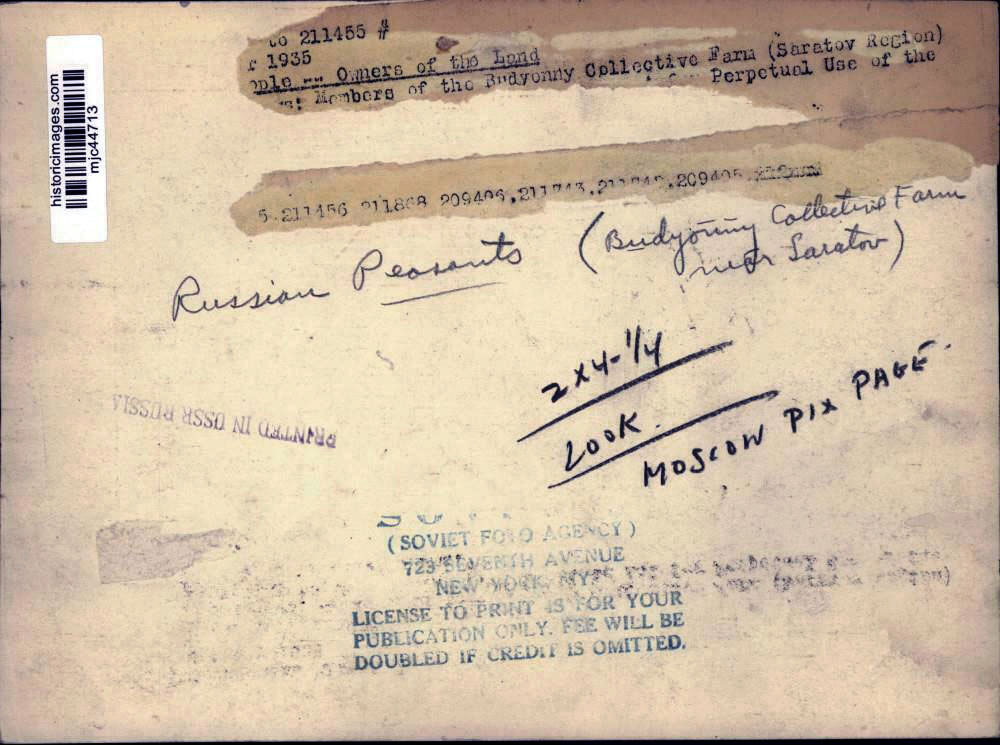 historicimages.com
mjc44713
to 211455 #
r 1935
ople -- Owners of the Land
Members of the Budyonny Collective Farm (Saratov Region)
Perpetual Use of the
5 211456 211868 209406, 209405
Russian Peasants (Budyonny Collective Farm
near Saratov)
2x4-1/4
LOOK.
MOSCOW PIX PAGE.
PRINTED IN USSR RUSSIA
(SOVIET FOTO AGENCY)
723 SEVENTH AVENUE
NEW YORK, NY.
LICENSE TO PRINT IS FOR YOUR
PUBLICATION ONLY. FEE WILL BE
DOUBLED IF CREDIT IS OMITTED.